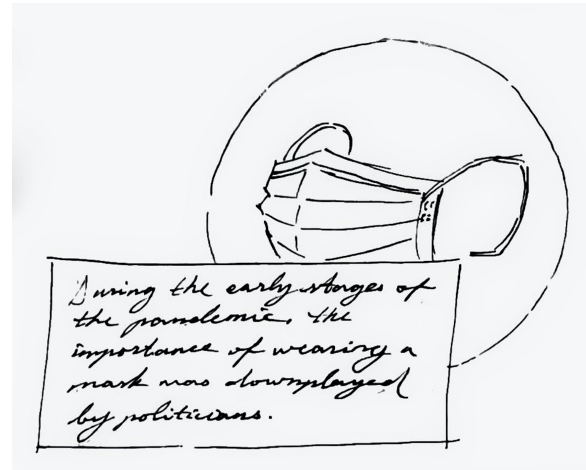 During the early stages of
the pandemic, the
importance of wearing a
mask was downplayed
by politicians.